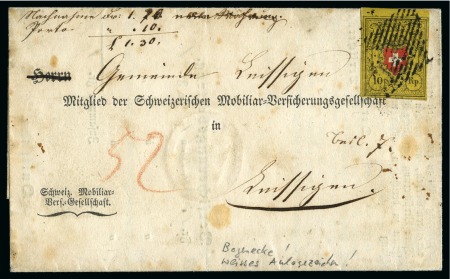 Nachnahme Frk. 1. 20
Porto " . 10.
f 1.30.
Herrn Gemeinde Leissigen
Mitglied der Schweizerischen Mobiliar-Versicherungsgesellschaft
in
beil. 7.
52
Leissigen
Schweiz. Mobiliar-
Vers.-Gesellschaft.
Bogenecke!
weisses Anlagezeichen!
10 Rp